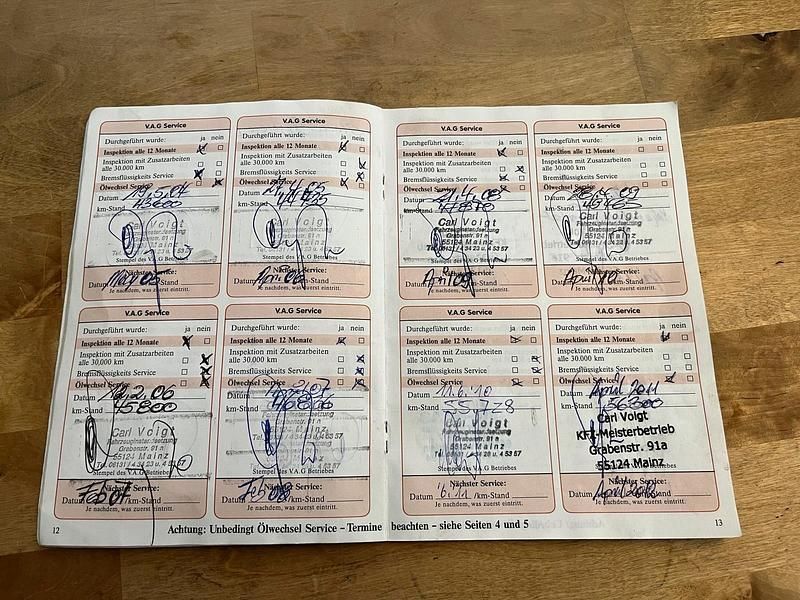 V.A.G Service
ja nein
Durchgeführt wurde:
Inspektion alle 12 Monate
Inspektion mit Zusatzarbeiten
alle 30.000 km
Bremsflüssigkeits Service
Ölwechsel Service
Datum
km-Stand 43600
Carl Voigt
Grabenstr. 91 a
55124 Mainz
Stempel des V.A.G Betriebes
Nächster Service:
Datum May 05
Je nachdem, was zuerst eintritt.
V.A.G Service
ja nein
Durchgeführt wurde:
Inspektion alle 12 Monate
Inspektion mit Zusatzarbeiten
alle 30.000 km
Bremsflüssigkeits Service
Ölwechsel Service
Datum
km-Stand
Carl Voigt
Grabenstr. 91 a
55124 Mainz
Stempel des V.A.G Betriebes
Nächster Service:
Datum April 06
Je nachdem, was zuerst eintritt.
V.A.G Service
ja nein
Durchgeführt wurde:
Inspektion alle 12 Monate
Inspektion mit Zusatzarbeiten
alle 30.000 km
Bremsflüssigkeits Service
Ölwechsel Service
Datum
km-Stand 45800
Carl Voigt
Grabenstr. 91 a
55124 Mainz
Tel. 06131 / 4 34 23 u. 4 53 57
Nächster Service:
Datum Feb 07 /km-Stand
Je nachdem, was zuerst eintritt.
V.A.G Service
ja nein
Durchgeführt wurde:
Inspektion alle 12 Monate
Inspektion mit Zusatzarbeiten
alle 30.000 km
Bremsflüssigkeits Service
Ölwechsel Service
Datum
km-Stand
Carl Voigt
Grabenstr. 91 a
55124 Mainz
Stempel des V.A.G Betriebes
Nächster Service:
Datum Feb 08 /km-Stand
Je nachdem, was zuerst eintritt.
12
V.A.G Service
ja nein
Durchgeführt wurde:
Inspektion alle 12 Monate
Inspektion mit Zusatzarbeiten
alle 30.000 km
Bremsflüssigkeits Service
Ölwechsel Service
Datum
km-Stand
Carl Voigt
Grabenstr. 91 a
55124 Mainz
Stempel des V.A.G Betriebes
Nächster Service:
Datum April 09
Je nachdem, was zuerst eintritt.
V.A.G Service
ja nein
Durchgeführt wurde:
Inspektion alle 12 Monate
Inspektion mit Zusatzarbeiten
alle 30.000 km
Bremsflüssigkeits Service
Ölwechsel Service
Datum
km-Stand
Carl Voigt
Grabenstr. 91 a
55124 Mainz
Stempel des V.A.G Betriebes
Nächster Service:
Datum April 10
Je nachdem, was zuerst eintritt.
V.A.G Service
ja nein
Durchgeführt wurde:
Inspektion alle 12 Monate
Inspektion mit Zusatzarbeiten
alle 30.000 km
Bremsflüssigkeits Service
Ölwechsel Service
Datum 11.6.10
km-Stand 55728
Carl Voigt
Grabenstr. 91 a
55124 Mainz
Stempel des V.A.G Betriebes
Nächster Service:
Datum 6.11 /km-Stand
Je nachdem, was zuerst eintritt.
V.A.G Service
ja nein
Durchgeführt wurde:
Inspektion alle 12 Monate
Inspektion mit Zusatzarbeiten
alle 30.000 km
Bremsflüssigkeits Service
Ölwechsel Service
Datum April 2011
km-Stand 56300
Carl Voigt
KFZ-Meisterbetrieb
Grabenstr. 91a
55124 Mainz
Nächster Service:
Datum April 2012 /km-Stand
Je nachdem, was zuerst eintritt.
13
Achtung: Unbedingt Ölwechsel Service – Termine beachten – siehe Seiten 4 und 5